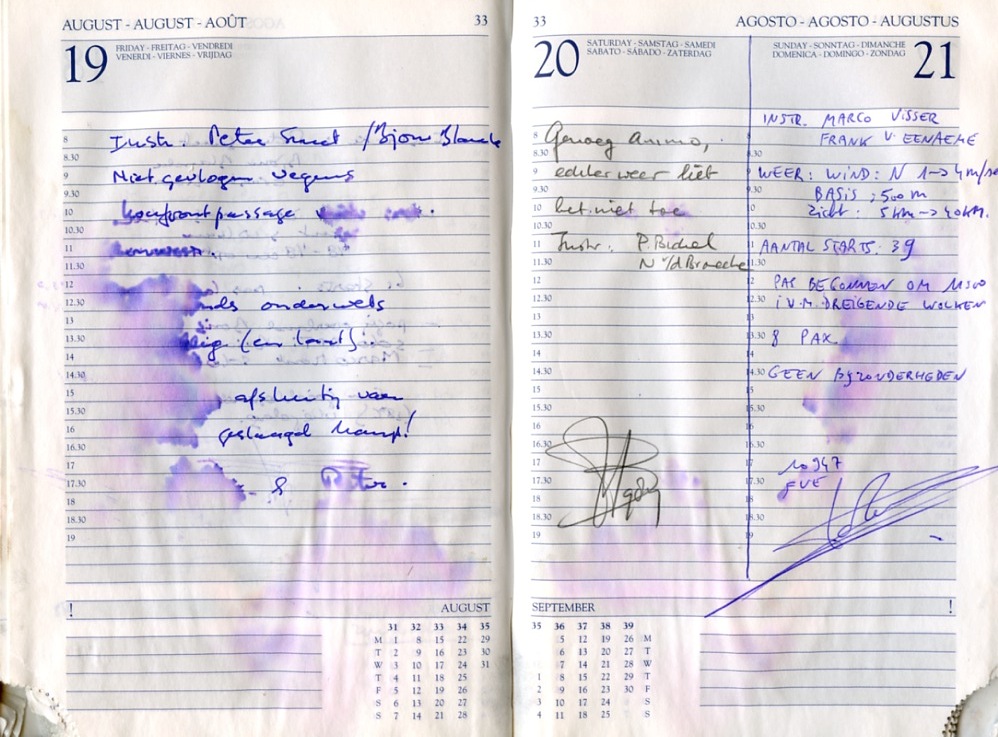 AUGUST - AUGUST - AOÛT 33
19 FRIDAY - FREITAG - VENDREDI
VENERDI - VIERNES - VRIJDAG
8 Instr. Peter Smet / Bjorn
8.30
9 Niet gevlogen wegens
9.30
10 koufrontpassage
10.30
11
11.30
12
12.30 onderwets
13
13.30 (en laat).
14
14.30
15 afsluiting van
15.30
16 geslaagd kamp!
16.30
17
17.30 Peter.
18
18.30
19
! AUGUST
31 32 33 34 35
M 1 8 15 22 29
T 2 9 16 23 30
W 3 10 17 24 31
T 4 11 18 25
F 5 12 19 26
S 6 13 20 27
S 7 14 21 28
33 AGOSTO - AGOSTO - AUGUSTUS
20 SATURDAY - SAMSTAG - SAMEDI
SABATO - SÁBADO - ZATERDAG
8 Genoeg animo,
8.30
9 echter weer liet
9.30
10 het niet toe
10.30
11 Instr. P.
11.30 N v/d
12
12.30
13
13.30
14
14.30
15
15.30
16
16.30
17
17.30
18
18.30
19
SUNDAY - SONNTAG - DIMANCHE
DOMENICA - DOMINGO - ZONDAG 21
INSTR. MARCO VISSER
FRANK V EENAEME
WEER: WIND: N 1->4 m/s
BASIS: 500 m
Zicht: 5 km -> 40 km.
AANTAL STARTS: 39
PAS BEGONNEN OM 1500
I.V.M. DREIGENDE WOLKEN
8 PAX
GEEN BIJZONDERHEDEN
10947
FVE
SEPTEMBER !
35 36 37 38 39
5 12 19 26 M
6 13 20 27 T
7 14 21 28 W
1 8 15 22 29 T
2 9 16 23 30 F
3 10 17 24 S
4 11 18 25 S